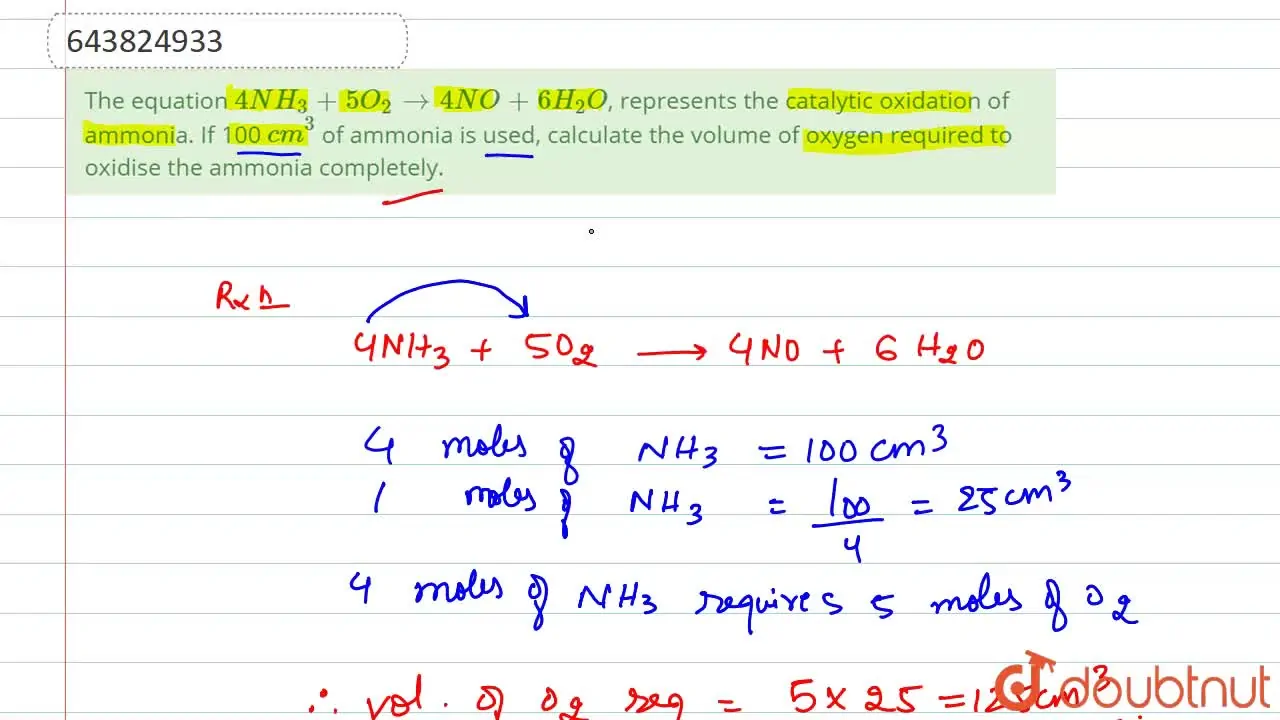 643824933
The equation 4NH₃ + 5O₂ → 4NO + 6H₂O, represents the catalytic oxidation of
ammonia. If 100 cm³ of ammonia is used, calculate the volume of oxygen required to
oxidise the ammonia completely.
Rxn
4NH₃ + 5O₂ → 4NO + 6H₂O
4 moles of NH₃ = 100 cm³
1 moles of NH₃ = 100/4 = 25 cm³
4 moles of NH₃ requires 5 moles of O₂
∴ vol. of O₂ req = 5 × 25 = 125cm³
doubtnut